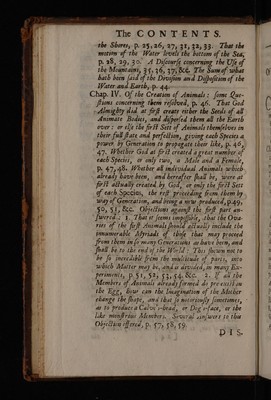 The CONTENTS.
the Shores, p. 25, 26, 27, 31, 32, 33. That the
motion of the Water levels the bottom of the Sea,
p. 28, 29, 30. A Discourse concerning the Use of
the Mountains, 35, 36, 37, &c. The Sum of what
hath been said of the Division and Disposition of the
Water and Earth, p. 44.
Chap. IV. Of the Creation of Animals: some Que-
stions concerning them resolved, p. 46. That God
Almighty did at first create either the Seeds of all
Animate Bodies, and dispersed them all the Earth
over: or else the first Sett of Animals themselves in
their full state and perfection, giving each Species a
power by Generation to propagate their like, p. 46,
47. Whether God at first created a great number of
each Species, or only two, a Male and a Female,
p. 47, 48. Whether all individual Animals which
already have been, and hereafter shall be, were at
first actually created by God, or only the first Sett
of each Species, the rest proceeding from them by
way of Generation, and being a new produced, p. 49,
50, 51, &c. Objections against the first part an-
swered. 1. That it seems impossible, that the Ova-
ries of the first Animals should actually include the
innumerable Myriads of those that may proceed
from them in so many Generations as have been, and
shall be to the end of the World. This shewn not to
be so incredible from the multitude of parts, into
which Matter may be, and is divided, in many Ex-
periments, p. 51, 52, 53, 54, &c. 2. If all the
Members of Animals already formed do pre-exist in
the Egg, how can the Imagination of the Mother
change the shape, and that so notoriously sometimes,
as to produce a Calvs-head, or Dogs-face, or the
like monstrous Members. Several Answers to this
Objection offered, p. 57, 58, 59.
DIS-